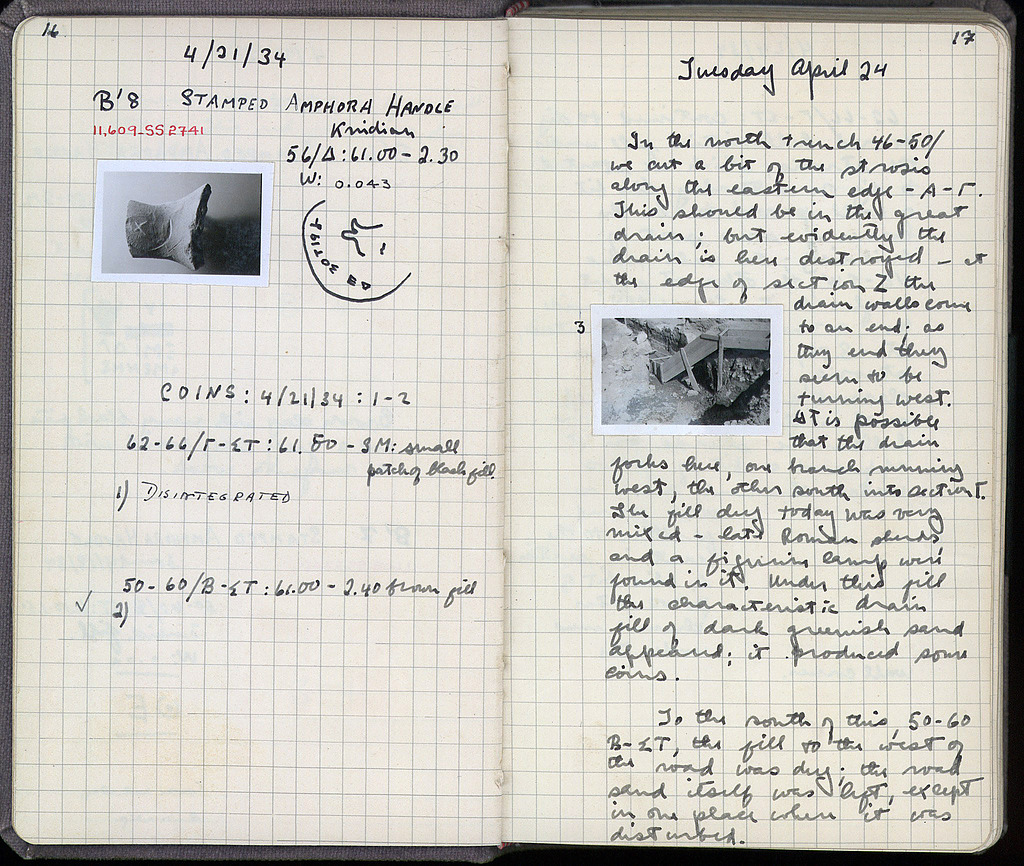 16
4/21/34
B'8 STAMPED AMPHORA HANDLE
11,609-SS 2741
Knidian
56/Δ:61.00-2.30
W: 0.043
COINS: 4/21/34 : 1-2
62-66/Γ-ΣΤ:61.80-3M: small
patch of black fill.
1) DISINTEGRATED
50-60/B-ΣΤ:61.00-2.40 brown fill
✓
2)
17
Tuesday April 24
In the north trench 46-50/
we cut a bit of the strosis
along the eastern edge - A-Γ.
This should be in the great
drain; but evidently the
drain is here destroyed - at
the edge of section Z the
drain walls come
to an end; as
they end they
seem to be
turning west.
It is possible
that the drain
3
forks here, one branch running
west, the other south into section T.
The fill dug today was very
mixed - late Roman sherds
and a figurine lamp were
found in it. Under this fill
the characteristic drain
fill of dark greenish sand
appeared; it produced some
coins.
To the south of this, 50-60
B-ΣΤ, the fill to the west of
the road was dug; the road
sand itself was left, except
in one place where it was
disturbed.